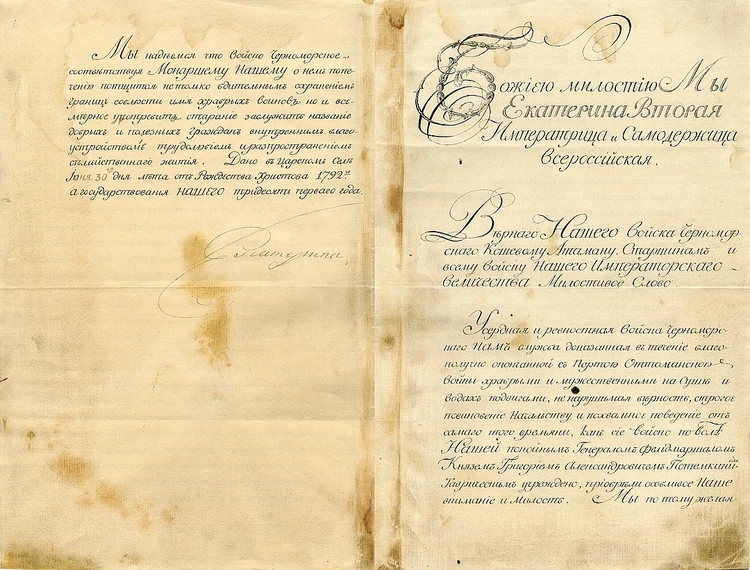 Мы надѣемся что Войско Черноморское
соотвѣтствуя Монаршему Нашему о немъ попе-
ченію потщится не только бдительнымъ охраненіемъ
границъ соблюсти имя храбрыхъ воиновъ, но и все-
мѣрное употребитъ стараніе заслужить названіе
добрыхъ и полезныхъ гражданъ внутреннимъ благо-
устройствомъ трудолюбіемъ и распространеніемъ
семейственнаго житія. Дано въ Царскомъ Селѣ
Іюня 30го дня лѣта отъ Рождества Христова 1792го
а государствованія НАШЕГО тридесять перваго года
Екатерина
Божіею милостію Мы
Екатерина Вторая
Императрица и Самодержица
Всероссійская.
Вѣрнаго Нашего Войска Черномор-
скаго Кошевому Атаману, Старшинамъ и
всему Войску Нашего Императорскаго
Величества Милостивое Слово
Усердная и ревностная Войска Черномор-
скаго Намъ служба доказанная въ теченіе благо-
получно оконченной съ Портою Оттоманскою
войны храбрыми и мужественными на Сушѣ и
водахъ подвигами, ненарушимая вѣрность, строгое
повиновеніе Начальству и похвальное поведеніе отъ
самаго того времяни, какъ сіе войско по волѣ
Нашей покойнымъ Генераломъ фелдмаршаломъ
Княземъ Григоріемъ Александровичемъ Потемкинымъ
Таврическимъ учреждено, пріобрѣли особливое Наше
вниманіе и Милость. Мы потому желая